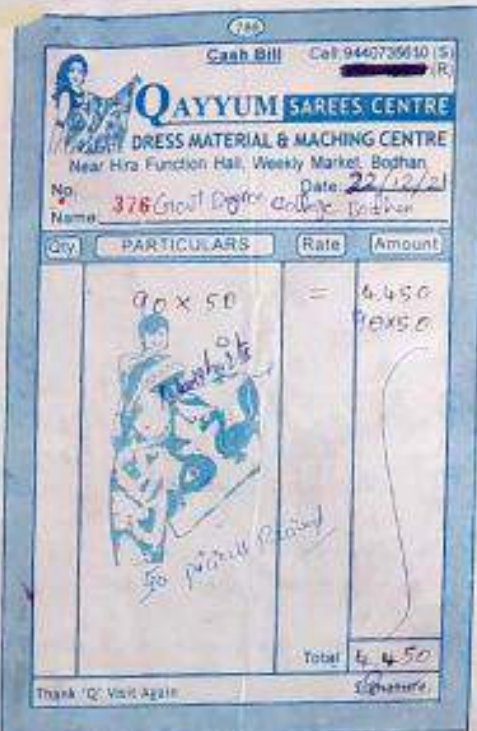 786
Cash Bill Cell: 9440736610 (S)
(R)
QAYYUM SAREES CENTRE
DRESS MATERIAL & MACHING CENTRE
Near Hira Function Hall, Weekly Market, Bodhan
No. 376 Date: 22/12/21
Name Govt Degree College Bodhan
Qty. PARTICULARS Rate Amount
90 x 50 = 4.450
90x50
50 Received
Total 4450
Thank 'Q' Visit Again Signature